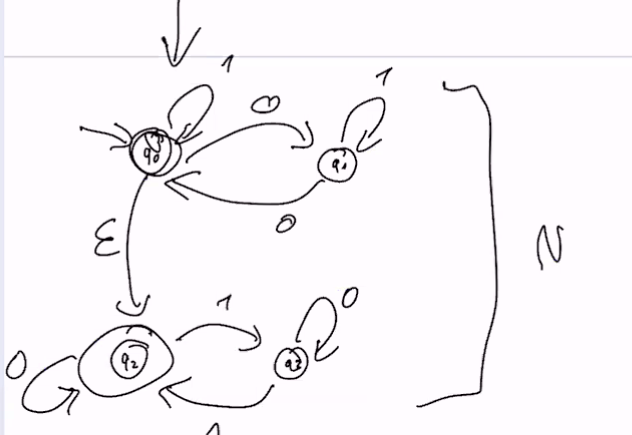 1
0
1
q0
q1
0
ε
N
1
0
0
q2
q3
1